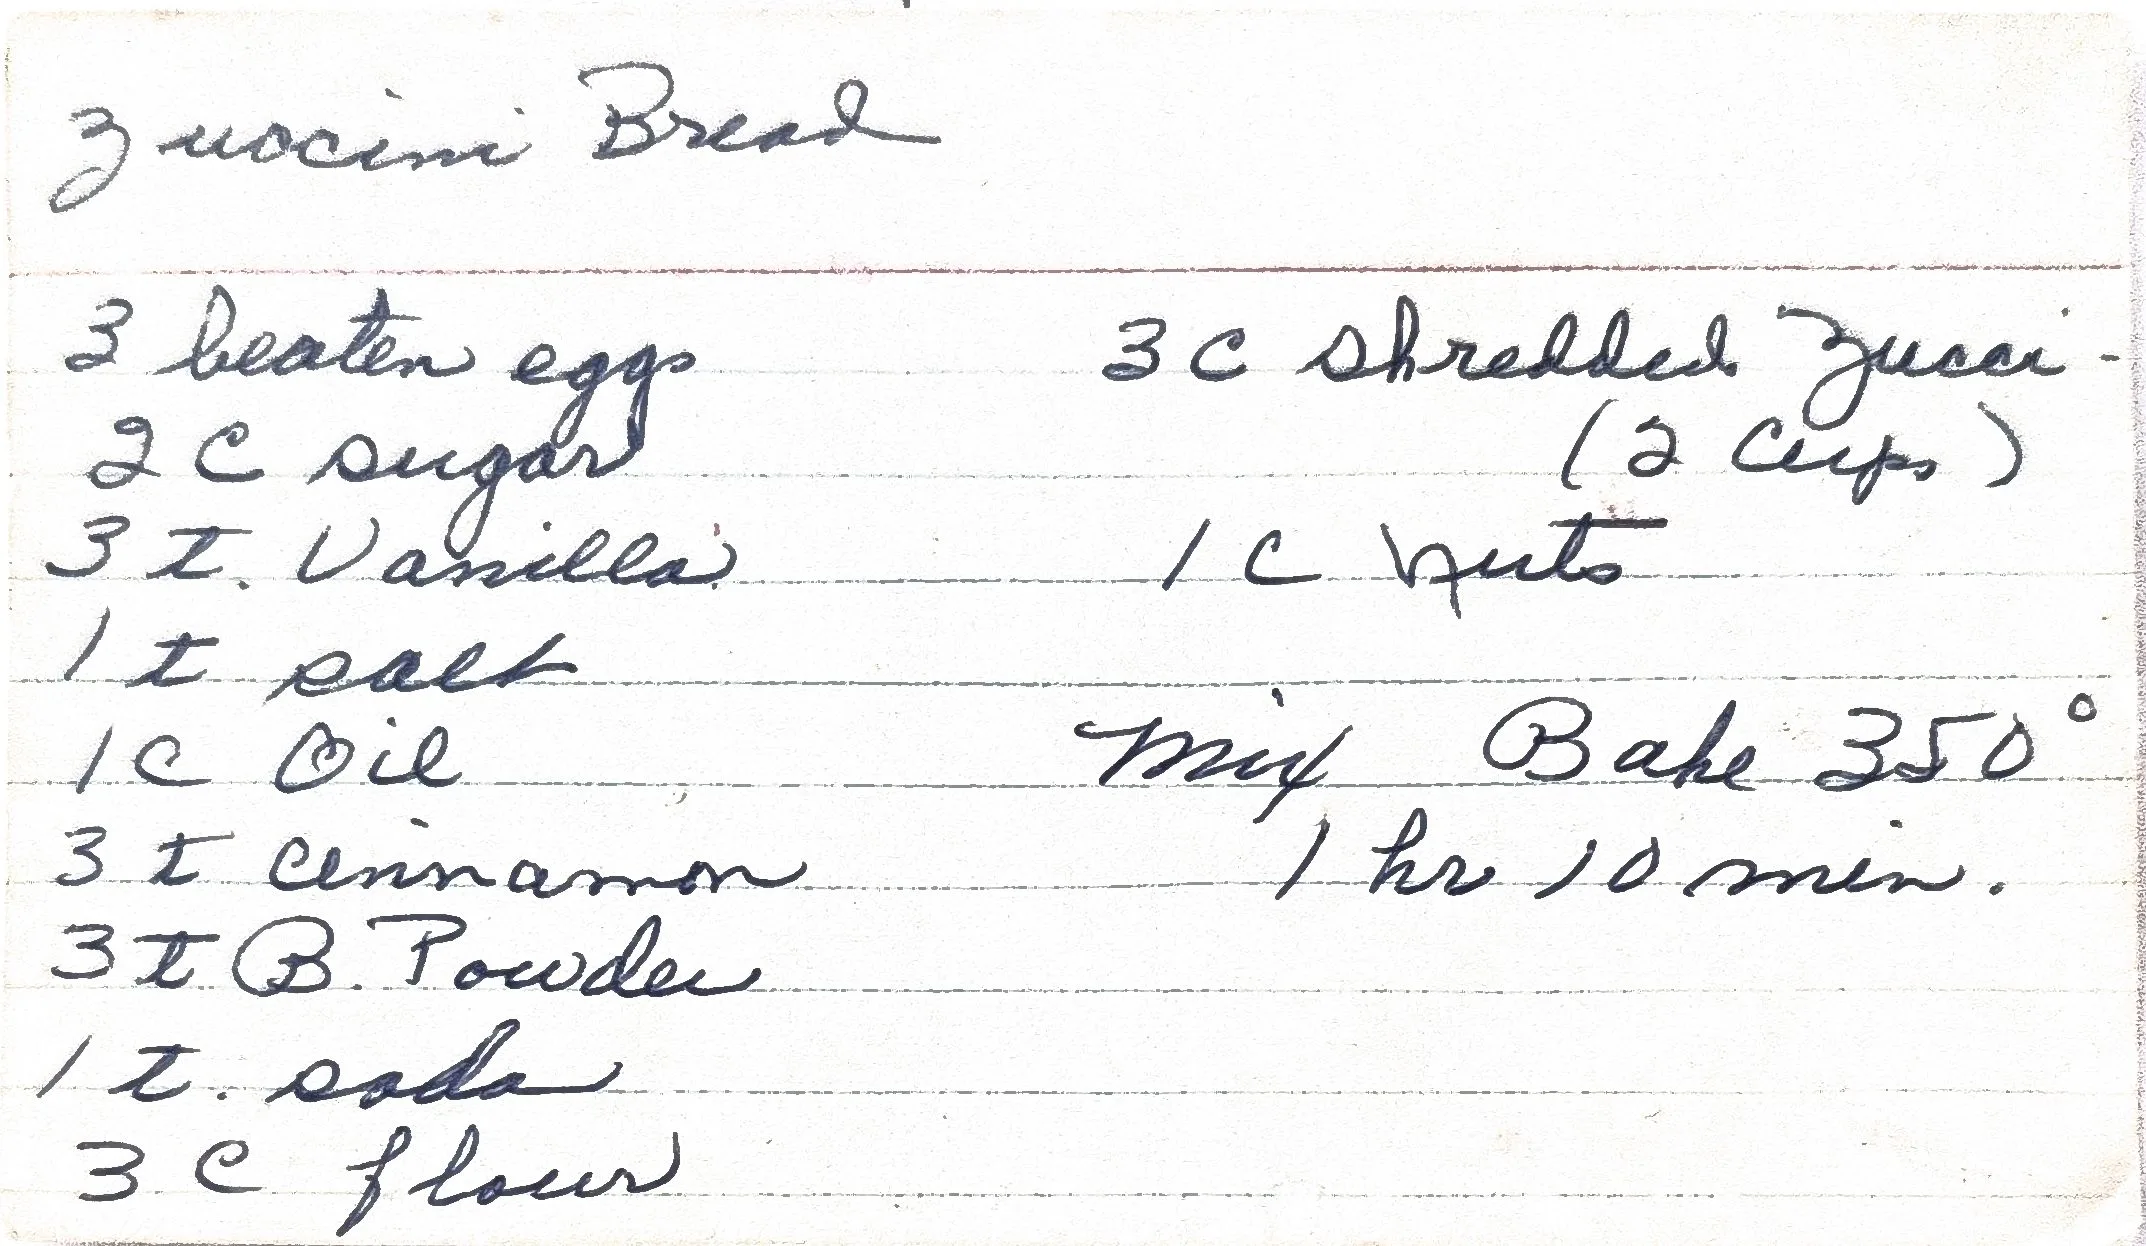 Zuccini Bread
3 beaten eggs
2 C sugar
3 t. Vanilla
1 t salt
1 C Oil
3 t Cinnamon
3 t B. Powder
1 t. soda
3 C flour
3 C shredded Zucci-
(2 Cups)
1 C nuts
Mix Bake 350°
1 hr 10 min.